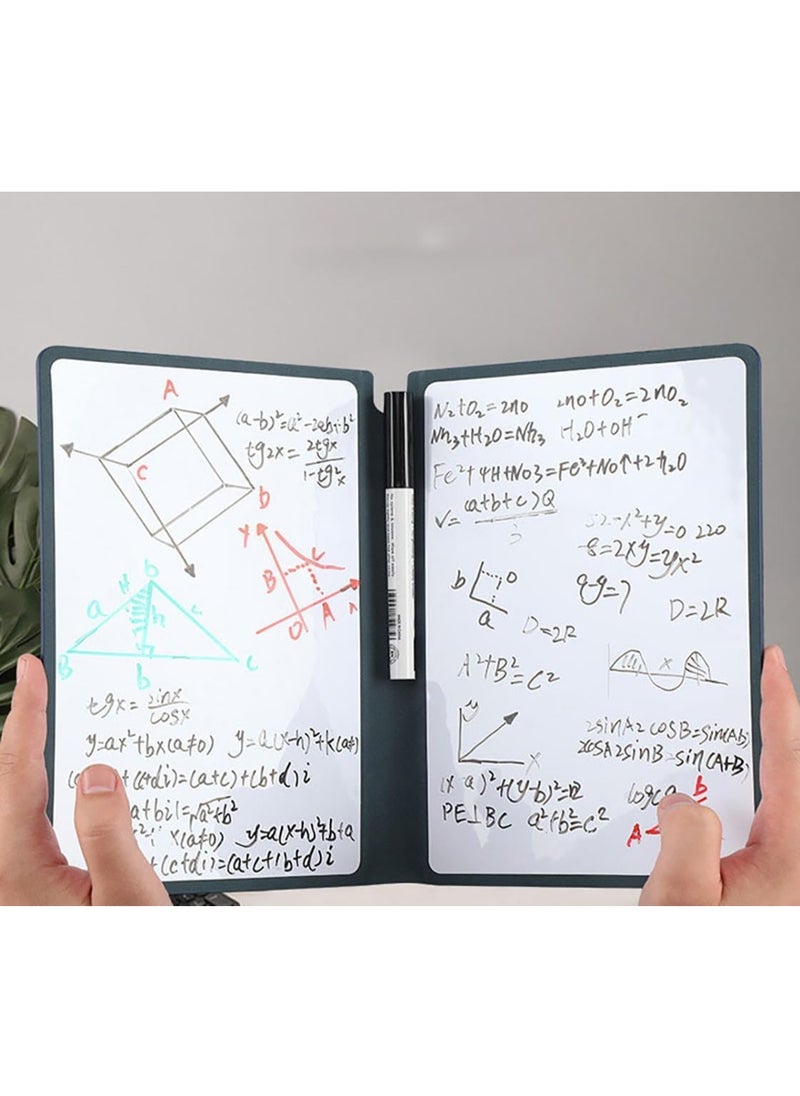 A
C
D
(a-b)²=a²-2ab+b²
tg2x = 2tgx / 1-tg²x
Y
B
C
O
A
H
b
a
h
c
B
b
C
tgx = sinx / cosx
y=ax²+bx(a≠0) y=a(x-h)²+k(a≠
+(c+di)=(a+c)+(b+d)i
a+bi|=√a²+b²
x(a≠0) y=a(x-h)²+b+a
+(c+di)=(a+c+(b+d)i
N₂+O₂=2no 2no+O₂=2nO₂
Nh₃+H₂O=Nh₃ H₂O+OH⁻
Fe²+4H+NO3=Fe³+NO↑+2h₂O
V= (a+b+c)Q / 3
-x²+y=0 220
-8=2xy=yx²
9-y=7
b
O
a
D=2R
D=2R
A²+B²=C²
x
y
x
2sinA2cosB=sin(Ab)
2cosA2sinB=sin(A+B)
(x-a)²+(y-b)²=
PE⊥BC a²+b²=c²
logca
b
A